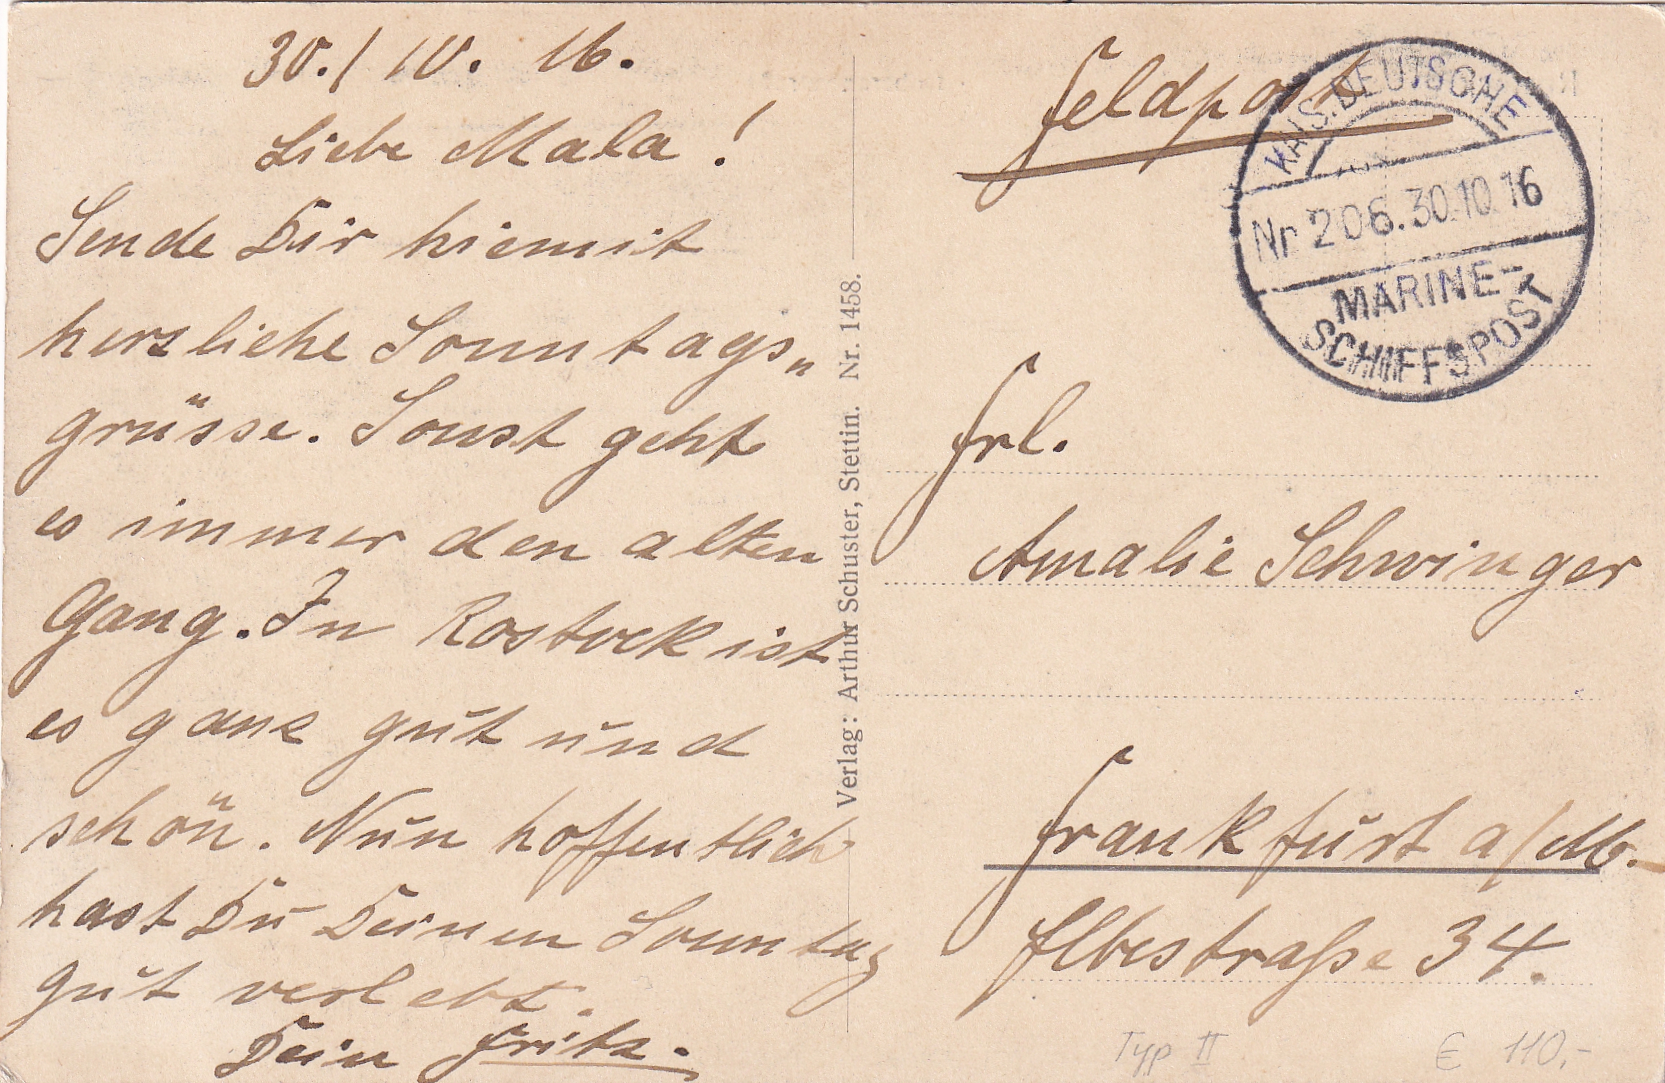 30./10. 16.
Liebe Mala!
Sende Dir hiemit
herzliche Sonntags„
grüsse. Sonst geht
es immer den alten
Gang. In Rostock ist
es ganz gut und
schön. Nun hoffentlich
hast Du Deinen Sonntag
gut verlebt.
Dein Fritz.
Verlag: Arthur Schuster, Stettin. Nr. 1458.
Feldpost
KAIS. DEUTSCHE
Nr 206. 30.10 16
MARINE-
SCHIFFSPOST
Frl.
Amalie Schwinger
Frankfurt a/M.
Elbestraße 34.
Typ II € 110,-